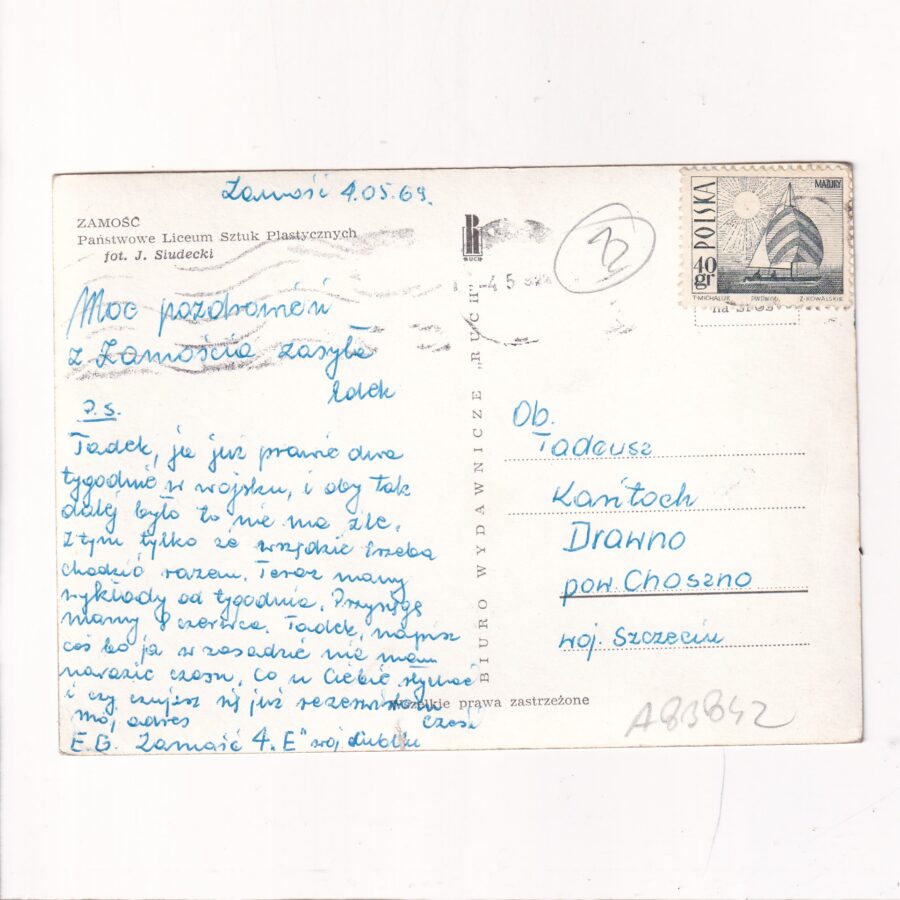 Zamość 4.05.69.
ZAMOŚĆ
Państwowe Liceum Sztuk Plastycznych
fot. J. Siudecki
Moc pozdrowień
z Zamościa zasyła
Edek
P.S.
Tadek, ja już prawie dwa
tygodnie w wojsku, i oby tak
dalej było to nie ma źle.
Z tym tylko że wszędzie trzeba
chodzić razem. Teraz mamy
wykłady od tygodnia. Przysięgę
mamy 8 czerwca. Tadek, napisz
coś bo ja w zasadzie nie mam
narazie czasu. Co u Ciebie słychać
i czy czujesz się już
Mój adres
Cześć
E.G. Zamość 4 "E" woj Lublin
RUCH
BIURO WYDAWNICZE „RUCH"
Wszelkie prawa zastrzeżone
POLSKA
MAZURY
40
gr
T. MICHALUK PWPW66 Z. KOWALSKIE
Ob.
Tadeusz
Drawno
pow. Choszno
woj. Szczecin
A83842